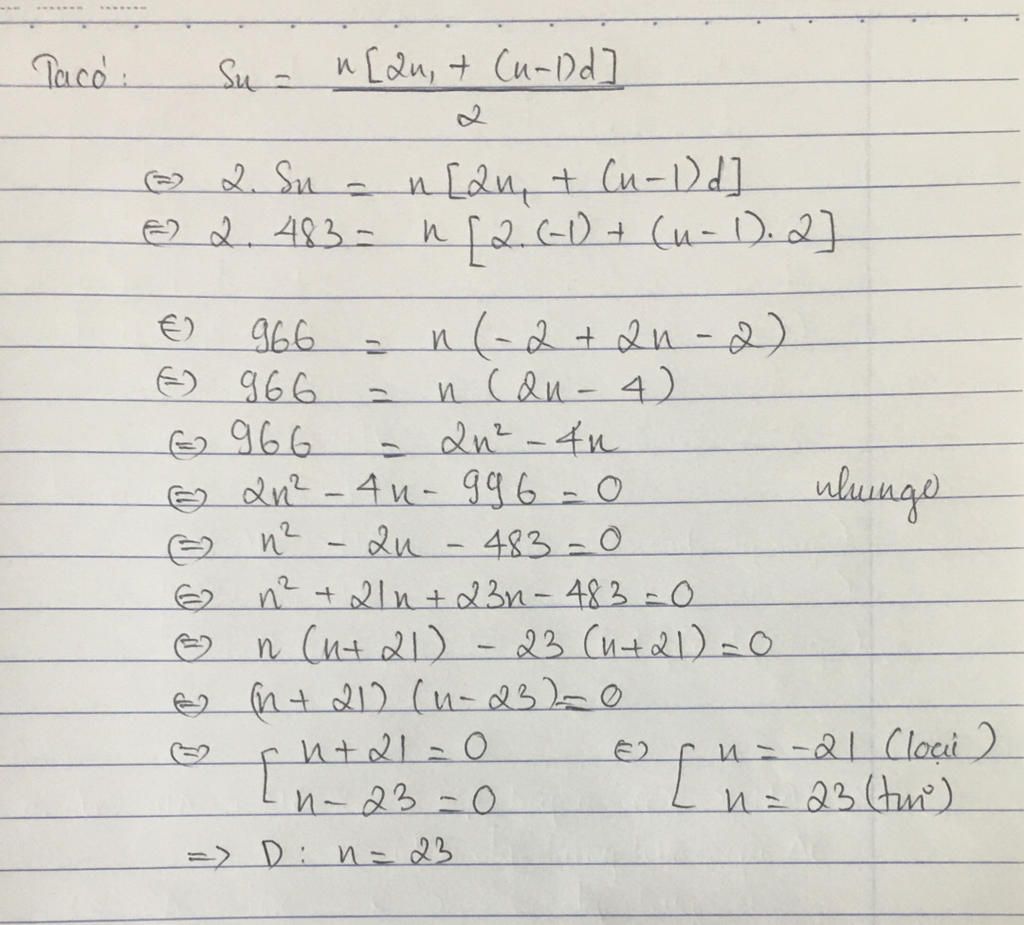 Ta có: Sn = n[2u₁ + (n-1)d] / 2
⇔ 2. Sn = n[2u₁ + (n-1)d]
⇔ 2. 483 = n[2.(-1) + (n-1).2]
⇔ 966 = n(-2 + 2n - 2)
⇔ 966 = n(2n - 4)
⇔ 966 = 2n² - 4n
⇔ 2n² - 4n - 996 = 0 nhungo
⇔ n² - 2n - 483 = 0
⇔ n² + 21n + 23n - 483 = 0
⇔ n(n+21) - 23(n+21) = 0
⇔ (n+21)(n-23) = 0
⇔ [ n+21 = 0 ⇔ [ n = -21 (loại)
n - 23 = 0 n = 23 (tm)
=> D: n = 23